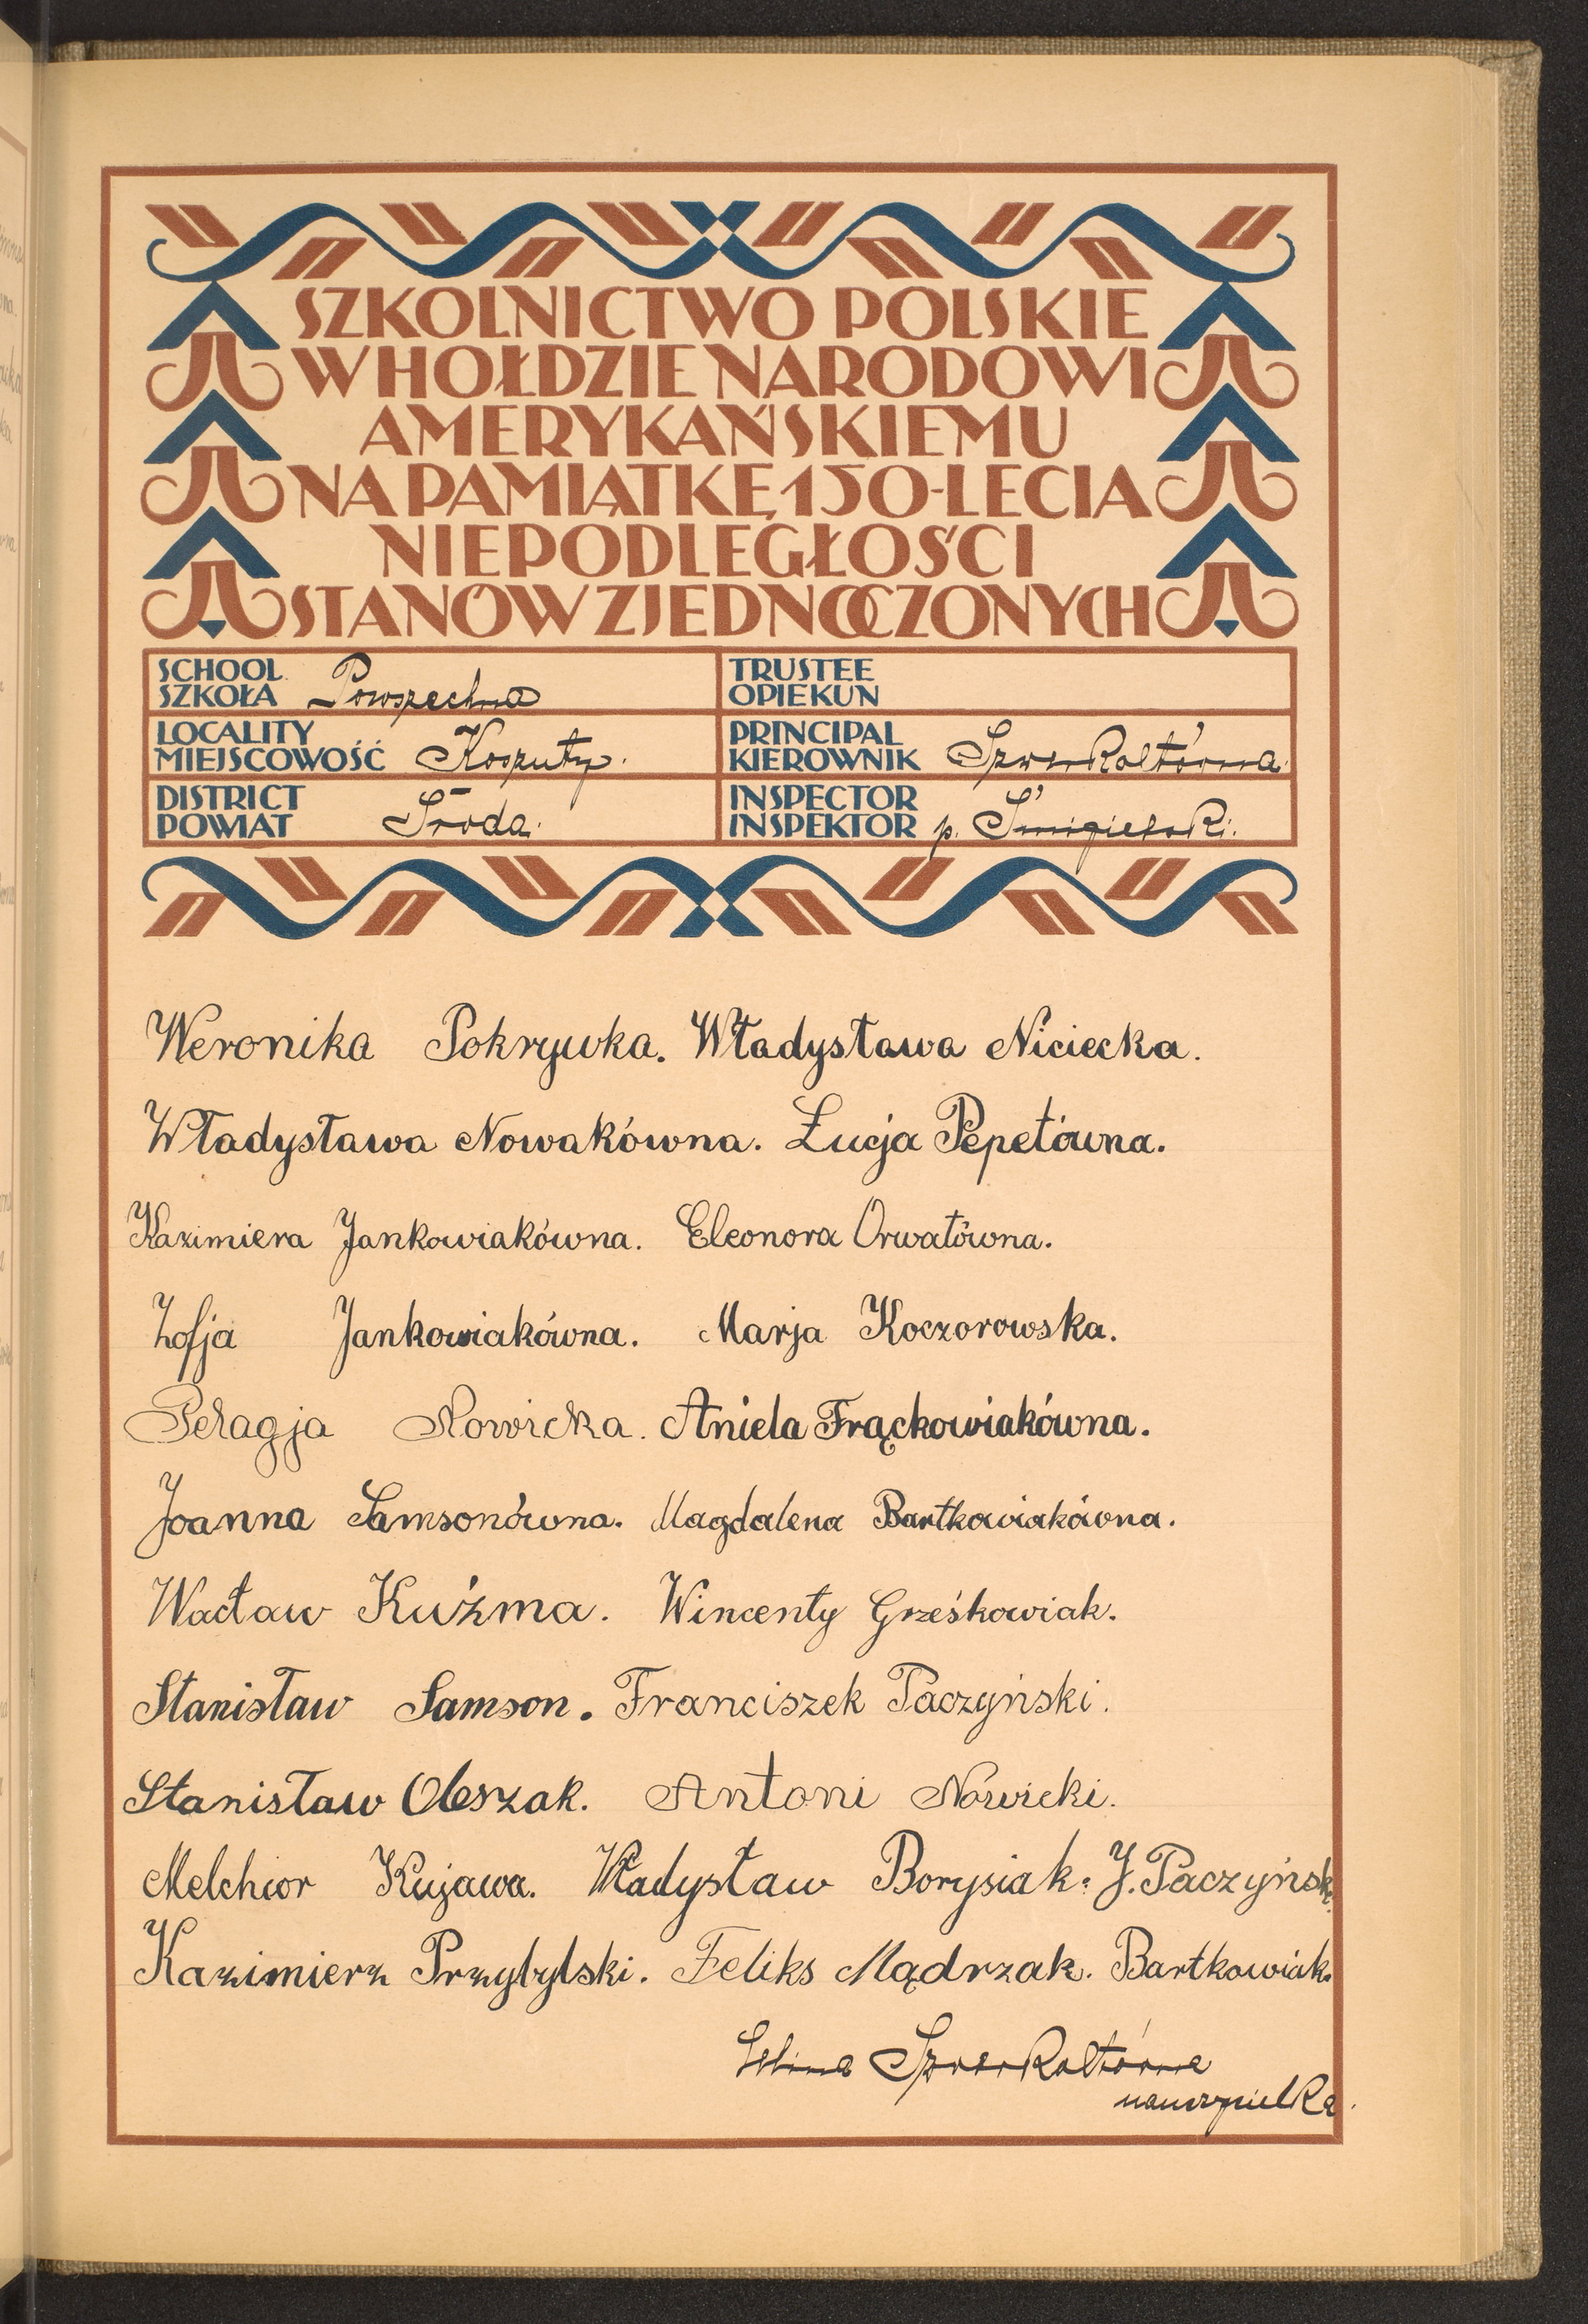 SZKOLNICTWO POLSKIE
W HOŁDZIE NARODOWI
AMERYKAŃSKIEMU
NA PAMIĄTKĘ 150-LECIA
NIEPODLEGŁOŚCI
STANÓW ZJEDNOCZONYCH
SCHOOL
SZKOŁA Powszechna
TRUSTEE
OPIEKUN
LOCALITY
MIEJSCOWOŚĆ Koszuty.
PRINCIPAL
KIEROWNIK Szwerkoltówna.
DISTRICT
POWIAT Środa.
INSPECTOR
INSPEKTOR p. Śmigielski.
Weronika Pokrywka. Władysława Niciecka.
Władysława Nowakówna. Łucja Pepetówna.
Kazimiera Jankowiakówna. Eleonora Orwatówna.
Zofja Jankowiakówna. Marja Koczorowska.
Pelagja Nowicka. Aniela Frąckowiakówna.
Joanna Samsonówna. Magdalena Bartkowiakówna.
Wacław Kuźma. Wincenty Grześkowiak.
Stanisław Samson. Franciszek Paczyński.
Stanisław Olszak. Antoni Nowicki.
Melchior Kujawa. Władysław Borysiak. J. Paczyński
Kazimierz Przybylski. Feliks Mądrzak. Bartkowiak.
Celina Szwerkoltówna
nauczycielka.